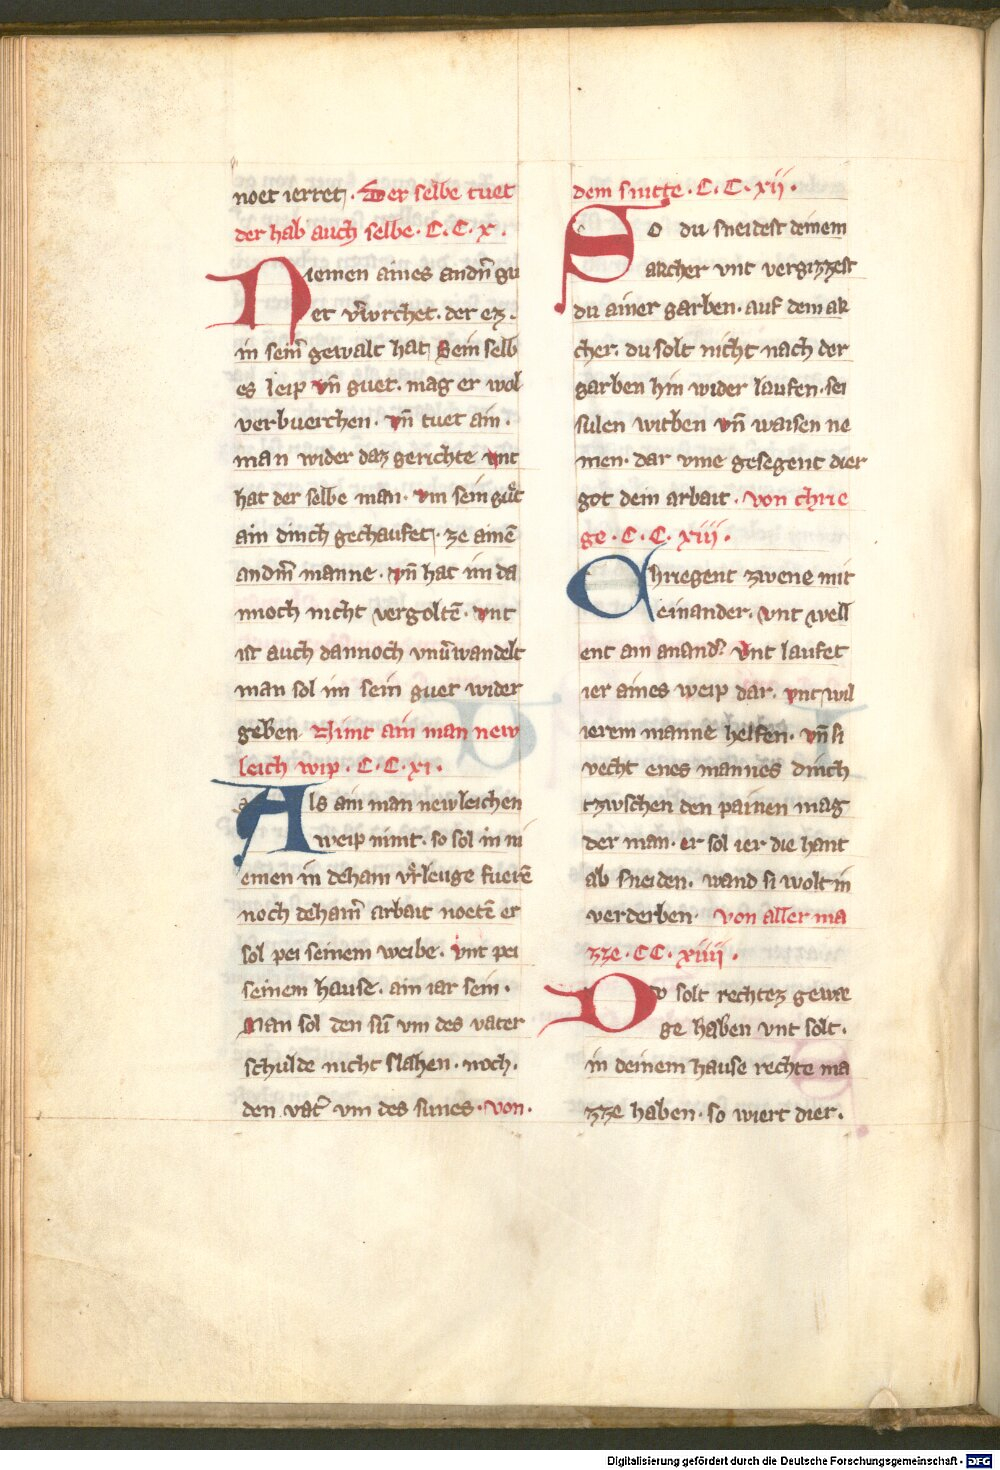 noet ierret. Der selbe tuet
der hab auch selbe · C · C · x ·
Niemen aines andn̄ gu
et v̄wrchet. der ez.
in sein̄ gewalt hat Sein selb
es leip vn̄ guet. mag er wol
verbuerchen. vn̄ tuet ain.
man wider daz gerichte vnt
hat der selbe man. vm sein guͤt
ain dinch gechaufet. ze ainē
andm̄ manne. vn̄ hat im da
nnoch nicht vergoltē. vnt
ist auch dannoch vnv̄wandelt
man sol im sein guet wider
geben. Nimt ain man new
leich wip · C · C · xi ·
Als ain man newleichen
weip nimt. so sol in ni
emen in dehain vrleuge fuerē
noch dehaim̄ arbait noetē er
sol pei seinem weibe. vnt pei
seinem hause. ain iar sein.
Man sol den sū vm des vater
schulde nicht slahen. noch.
den vat̄ vm des sunes. von.
dem snitte · C · C · xii ·
So du sneidest deinem
akcher vnt vergizzest
du ainer garben. auf dem ak
cher. du solt nicht nach der
garben hin wider laufen. sei
sulen witben vn̄ waisen ne
men. dar vme gesegent dier
got dein arbait. von chrie
ge · C · C · xiii ·
Chriegent zwene mit
einander. vnt well
ent ain anand̾ vnt laufet
ier aines weip dar. vnt wil
ierem manne helfen. vn̄ si
vecht enes mannes dinch
tzwschen den painen mag
der man. er sol ier die hant
ab sneiden. wand si wolt in
verderben. von aller ma
zze · CC · xiiii ·
Dv solt rechtez gewæ
ge haben vnt solt.
in deinem hause rechte ma
zze haben. so wiert dier.
Digitalisierung gefördert durch die Deutsche Forschungsgemeinschaft - DFG